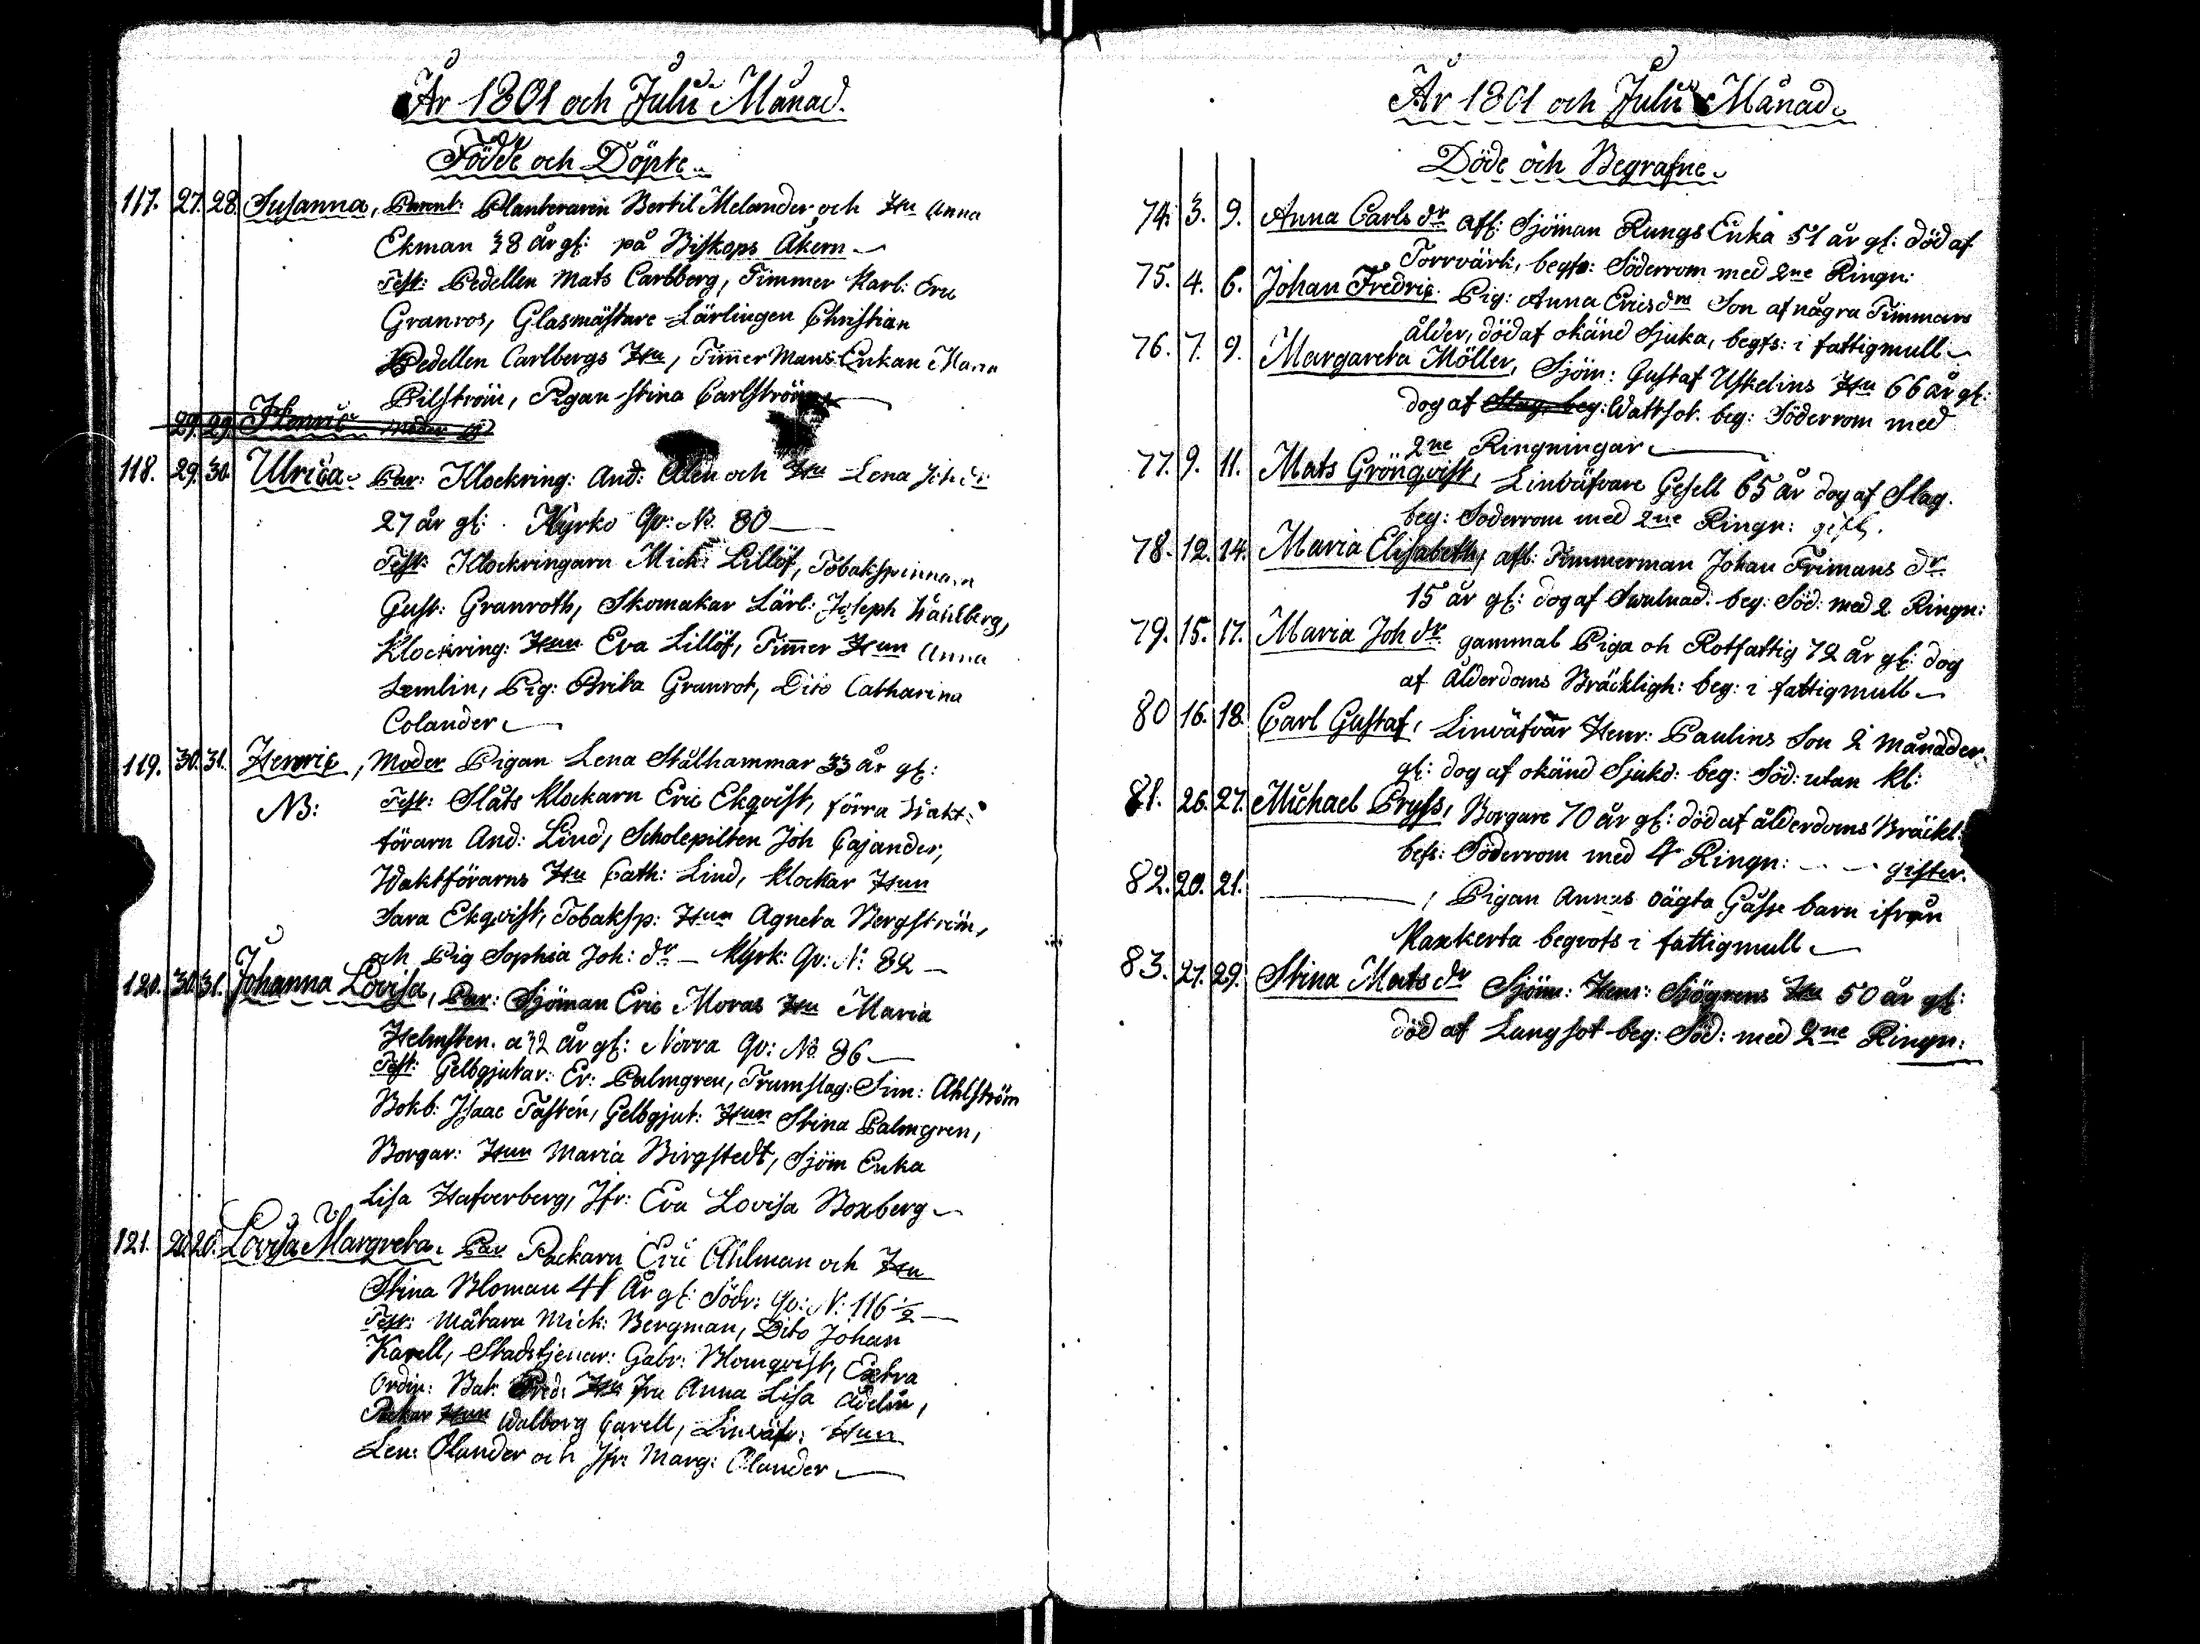 År 1801 och Julii Månad.
Födde och Döpte.
117. 27. 28. Susanna, Parent: Planteraren Bertil Melander och Hu Anna
Ekman 38 år gl: på Biskops Åkern
Test: Pedellen Mats Carlberg, Timmer Karl: Eric
Granros, Glasmästare Lärlingen Christian
Pedellen Carlbergs Hu, Timmer Mans Enkan
Pilström, Pigan Stina Carlström
29. 29. Henric Moder
118. 29. 30. Ulrica. Par: Klockring: And: och Hu Lena Joh dr
27 år gl: Kyrko Qv: No. 80
Test: Klockringarn Mich: Lillöf, Tobakspinnarn
Gust: Granroth, Skomakar Lärl: Joseph Wahlberg,
Klockring: Hun Eva Lillöf, Timmer Hun Anna
Lemlin, Pig: Brita Granrot, Dito Catharina
Colander
119. 30. 31. Henric, Moder Pigan Lena Stålhammar 33 år gl:
NB: Test: Slåts klockarn Eric Ekqvist, förra Wakt:
förarn And: Lind, Scholepilten Joh Cajander,
Waktförarns Hu Cath: Lind, klockar Hun
Sara Ekqvist, Tobaksp: Hun Agneta Bergström,
och Pig Sophia Joh: dr Kyrk: Qv: N: 82
120. 30. 31. Johanna Lovisa, Par: Sjöman Eric Moras Hu Maria
Helmsten. a 32 år gl: Norra Qv: No. 86
Test: Gelbgjutar: Er: Palmgren, Trumslag: Sim: Ahlström
Bokb: Isaac Tastén, Gelbgjut: Hun Stina Palmgren,
Borgar: Hun Maria Birgstedt, Sjöm Enka
Lisa Hafverberg, Jfr: Eva Lovisa Boxberg
121. 20. 20. Lovisa Margreta. Par Packarn Eric Ahlman och Hu
Stina Bloman 41 År gl: Södr: Qv: N: 116 ½
Test: Mätarn Mick: Bergman, Dito Johan
Karell, Stadstjenar: Gabr: Blomqvist, Extra
Ordin: Bat: Pred: Hu Fru Anna Lisa Adelin,
Packar Hun Walborg Carell, Linväfv: Hun
Len: Olander och Jfr: Marg: Olander
År 1801 och Julii Månad.
Döde och Begrafne.
74. 3. 9. Anna Carls dr afl: Sjöman Rungs Enka 51 år gl: död af
Torrvärk, begfs: Söderrom med 2ne Ringn:
75. 4. 6. Johan Fredric. Pig: Anna Ericsdrs Son af några Timmars
ålder, död af okänd Sjuka, begfs: i fattigmull
76. 7. 9. Margareta Möller, Sjöm: Gustaf Uskelins Hu 66 år gl:
dog af Slag, beg: Wattsot. beg: Söderrom med
2ne Ringningar
77. 9. 11. Mats Grönqvist, Linväfvare Gesell 65 år dog af Slag.
beg: Söderrom med 2ne Ringn: gift.
78. 12. 14. Maria Elisabeth, afl: Timmerman Johan Frimans dr
15 år gl: dog af Swulnad. beg: Söd: med 2 Ringn:
79. 15. 17. Maria Joh dr gammal Piga och Rotfattig 72 år gl: dog
af Ålderdoms Bräckligh: beg: i fattigmull
80 16. 18. Carl Gustaf, Linväfvar Henr: Paulins Son 2 månader
gl: dog af okänd Sjukd: beg: Söd: utan kl:
81. 26. 27. Michael Pryss, Borgare 70 år gl: död af ålderdoms Bräckl:
befs: Söderrom med 4 Ringn: - - - gifter.
82. 20. 21. , Pigan Annas oägta Gåsse barn ifrån
Kaxkerta begrofs i fattigmull
83. 27. 29. Stina Mats dr Sjöm: Henr: Sjögrens Hu 50 år gl:
död af Lungsot beg: Söd: med 2ne Ringn: